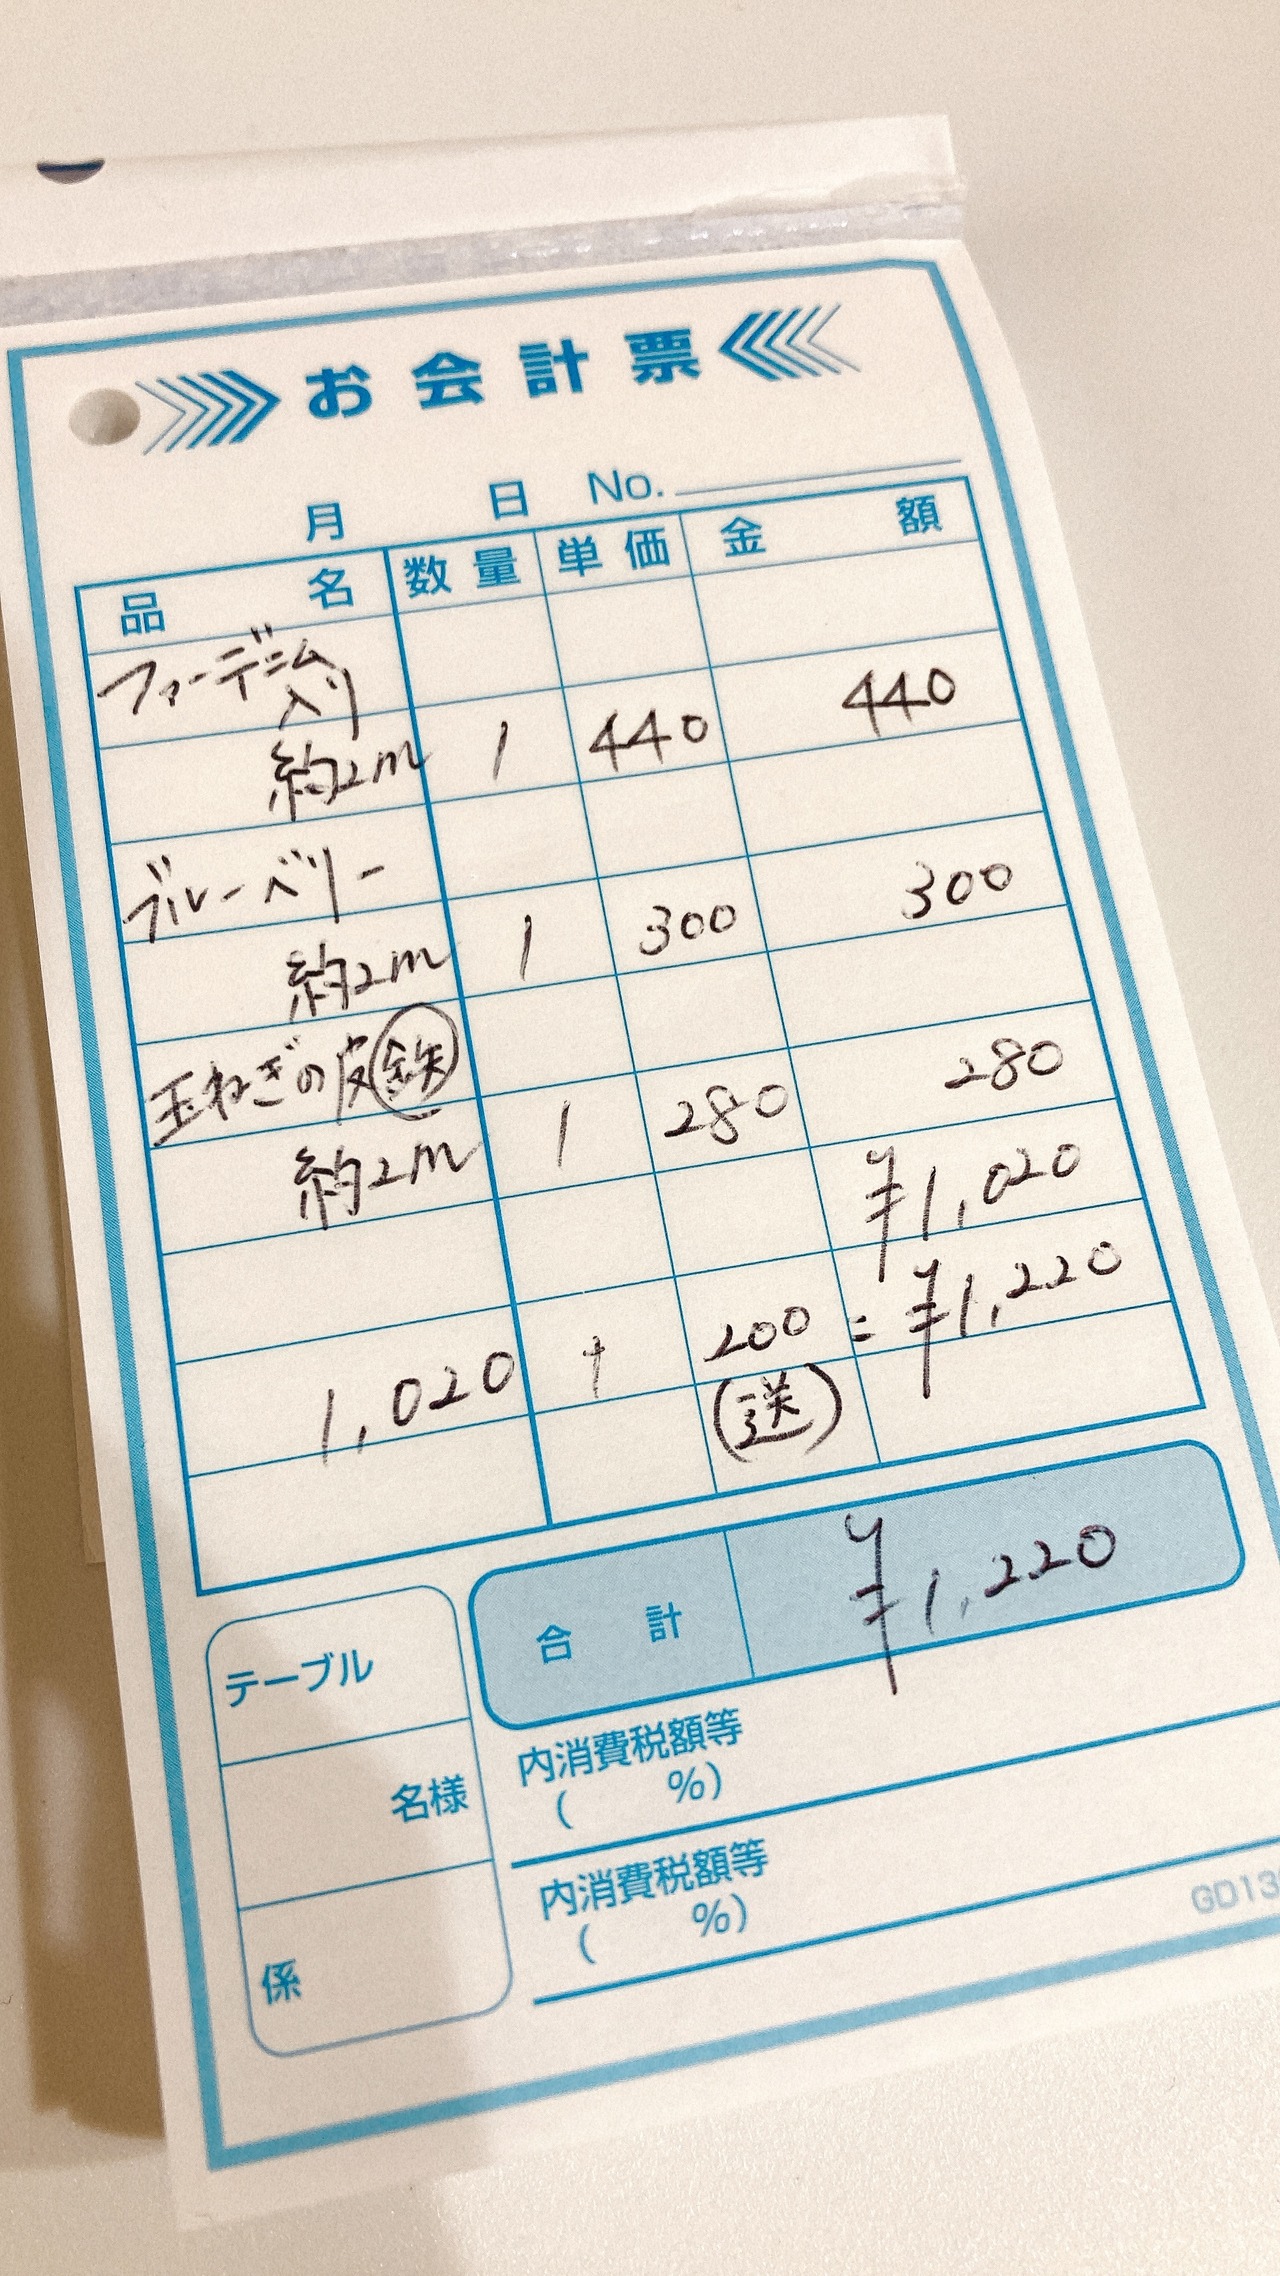 お会計票
月 日 No.
品名 数量 単価 金額
ファーデニム
入り
約2m 1 440 440
ブルーベリー
約2m 1 300 300
玉ねぎの皮 鉄
約2m 1 280 280
¥1,020
1,020 + 200 = ¥1,220
(送)
合計 ¥1,220
テーブル
名様
係
内消費税額等
( %)
内消費税額等
( %)
GD13